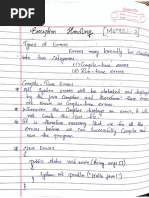 Exception Handling [Module-3]
Types of Errors
Errors may broadly be classified
into two categories
(1) Compile-time errors
(2) Run-time errors
Compile-Time Errors
* All Syntax errors will be detected and displayed
by the Java Compiler and therefore these errors
are known as Compile-time errors.
* Whenever the Compiler displays an error, it will
not create the .class file.
* It is therefore necessary that we fix all the
errors before we can successfully Compile and
run the program.
Class Error1
{
public static void main(String args[])
{
System.out.println("Hello Java")
}
}